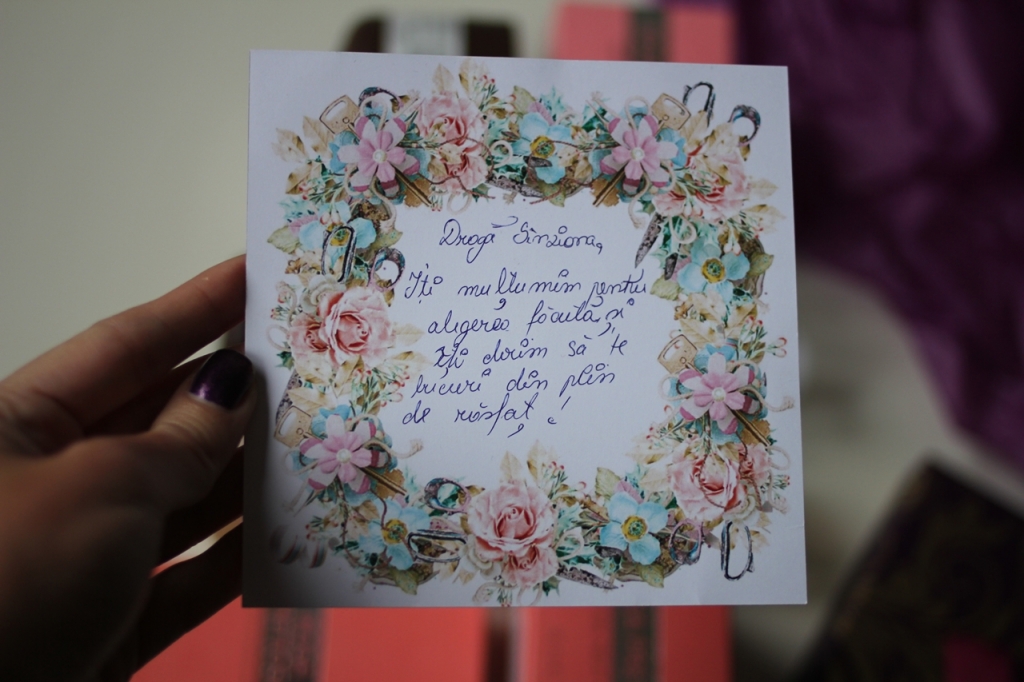 Dragă Sînziana,
Îți mulțumim pentru
alegerea făcută, și
Îți dorim să te
bucuri din plin
de răsfăț!